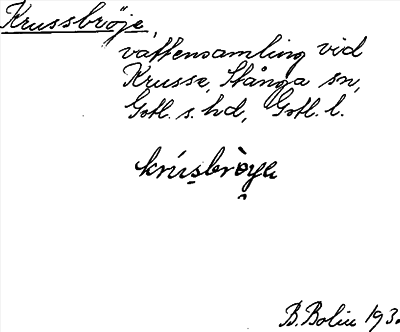 Krussbröje,
vattensamling vid
Krusse, Stånga sn,
Gotl. s. hd, Gotl. l.
krúsbròye
B. Bolin 193